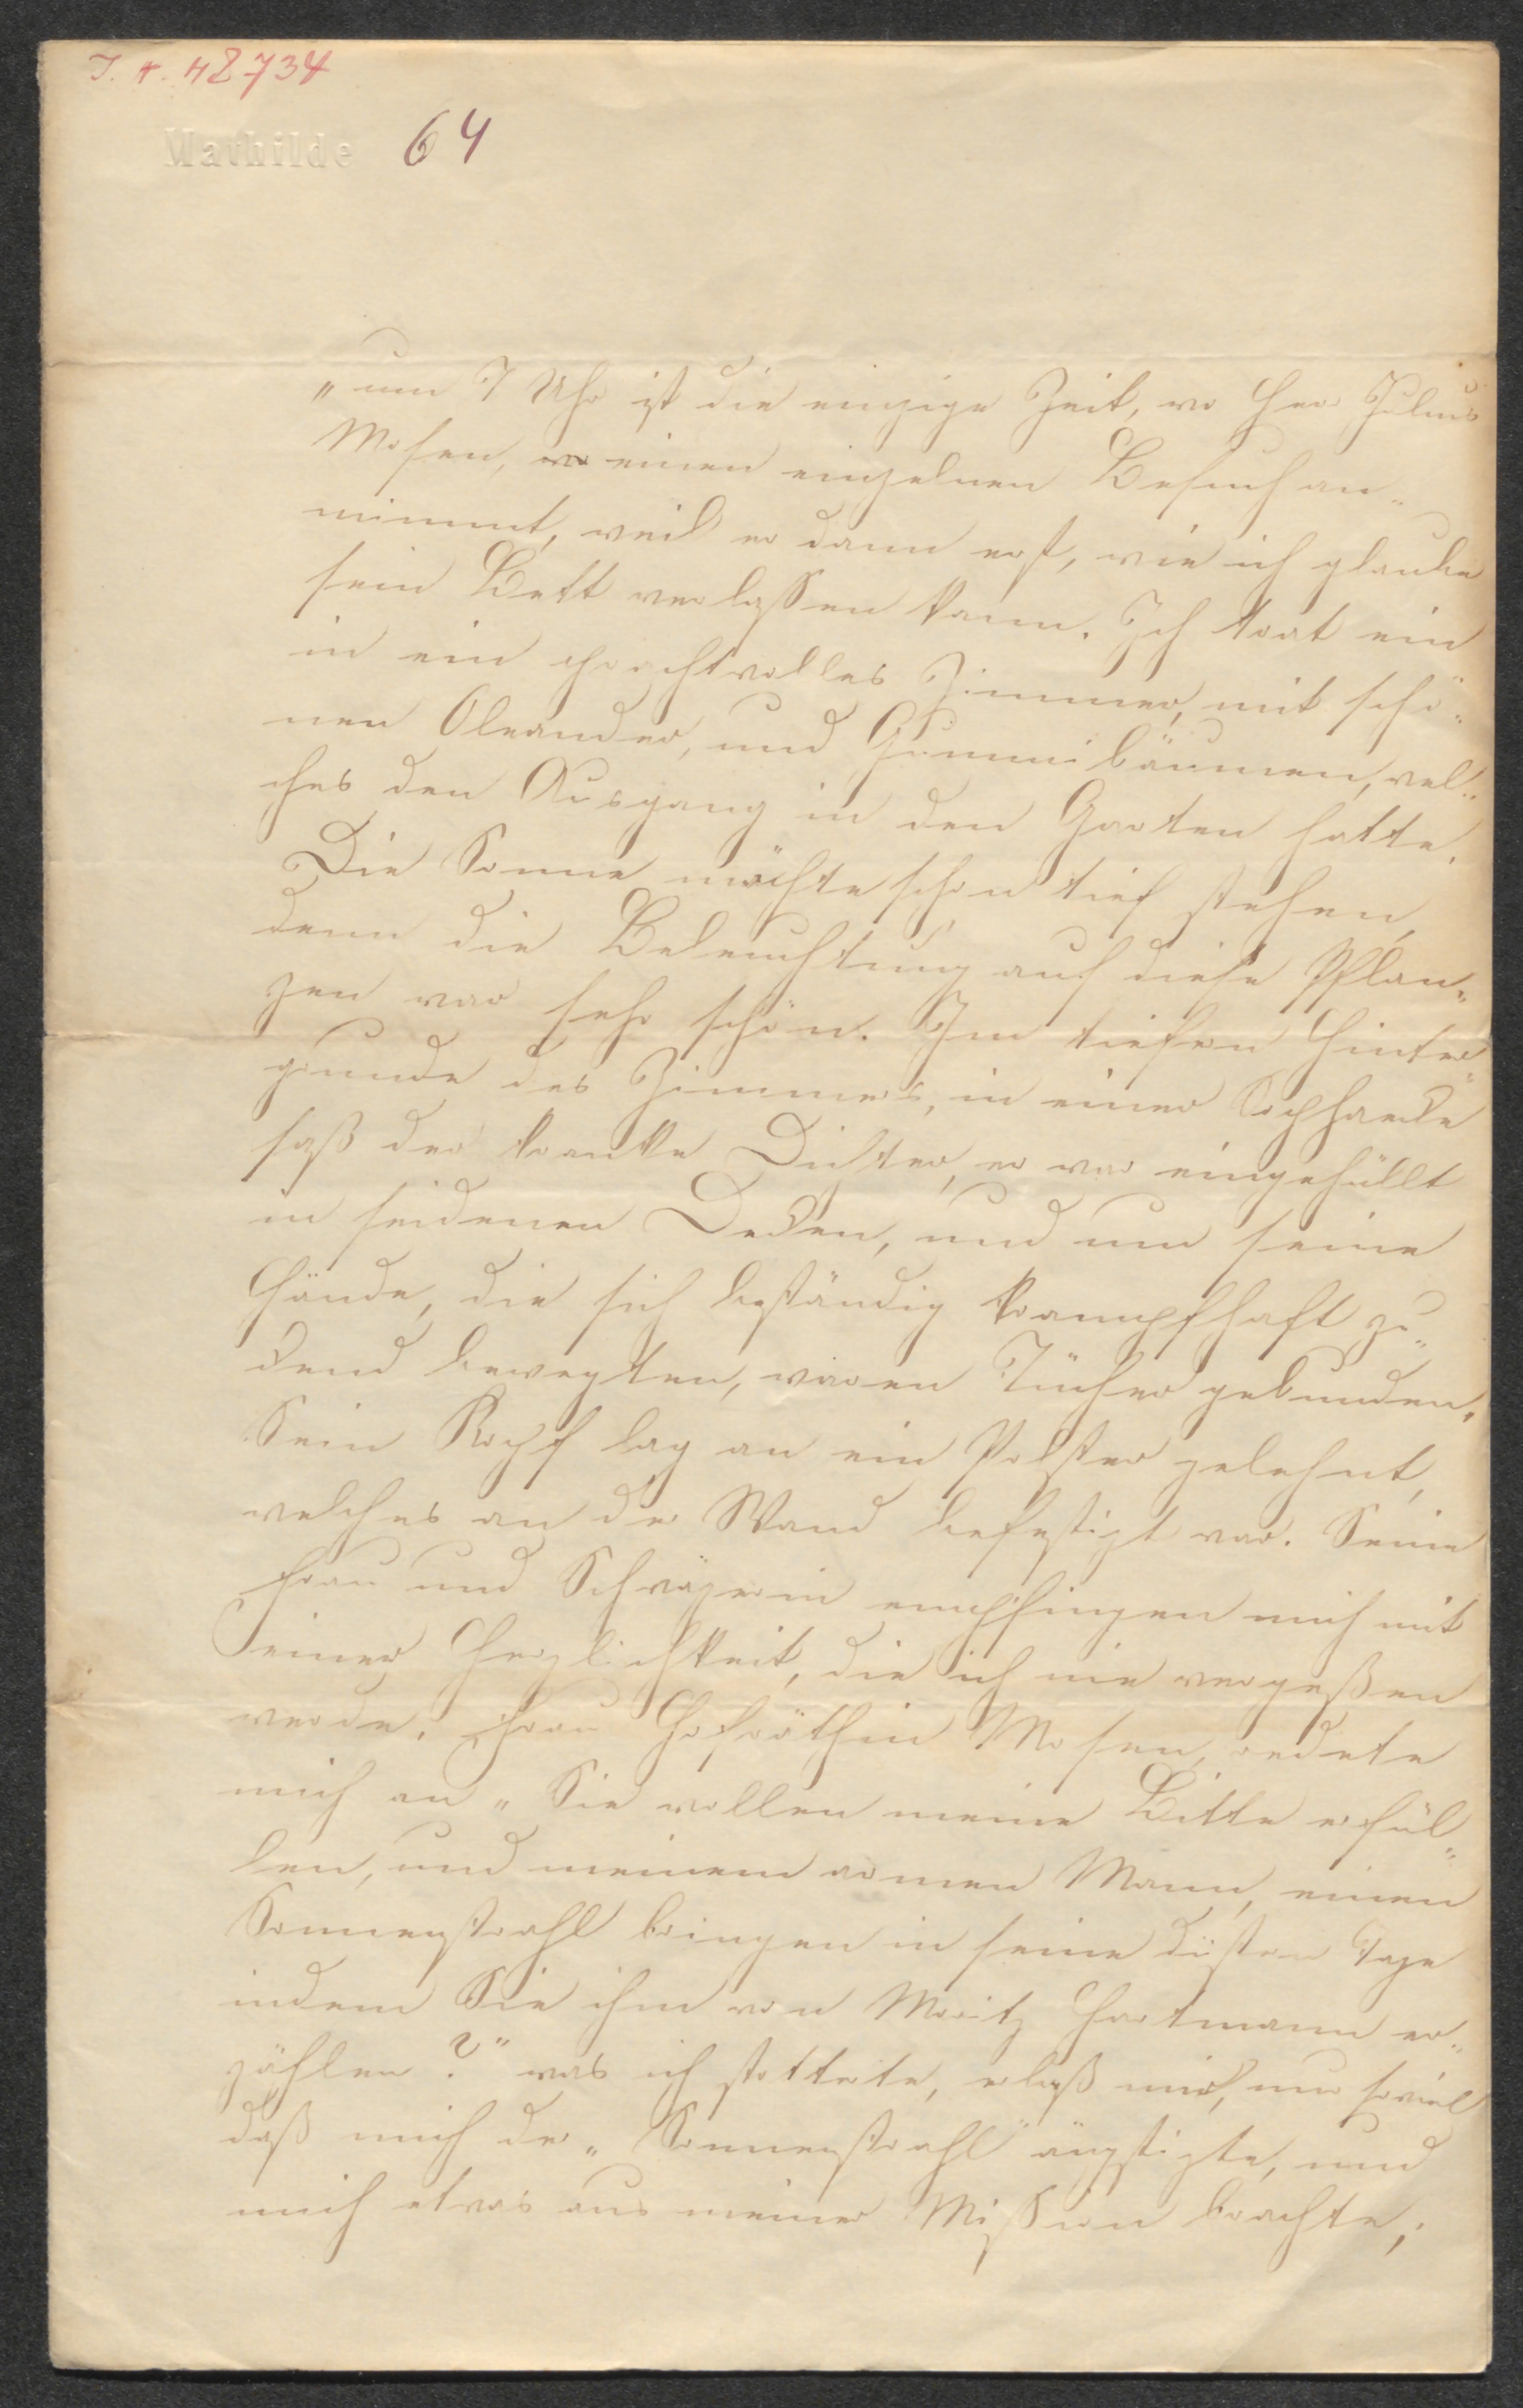 J. N. 48734
Mathilde 64
„um 7 Uhr ist die einzige Zeit, wo Herr Julius
Mosen, einen einzelnen Besuch an„
nimmt, weil er dann erst, wie ich glaube
sein Bett verlassen kann. Ich trat ein
in ein prachtvolles Zimmer, mit schö„
nen Oleander, und Gummibäumen, wel„
ches den Ausgang in den Garten hatte.
Die Sonne mochte schon tief stehen,
denn die Beleuchtung auf diese Pflan„
zen war sehr schön. Im tiefen Hinter„
grunde des Zimmers, in einer Sophaecke
saß der kranke Dichter, er war eingehüllt
in seidenen Decken, und um seine
Hände, die sich beständig krampfhaft zu„
ckend bewegten, waren Tücher gebunden.
Sein Kopf lag an ein Polster gelehnt,
welches an der Wand befestigt war. Seine
Frau und Schwägerin empfingen mich mit
einer Herzlichkeit, die ich nie vergeßen
werde. Frau Hofräthin Mosen, redete
mich an „Sie wollen meine Bitte erfül„
len, und meinem armen Mann, einen
Sonnenstrahl bringen in seine düstren Tage
indem Sie ihm von Moritz Hartmann er„
zählen?" was ich stotterte, erlaß mir, nur soviel
daß mich der „Sonnenstrahl" ängstigte, und
mich etwas aus meiner Mission brachte;